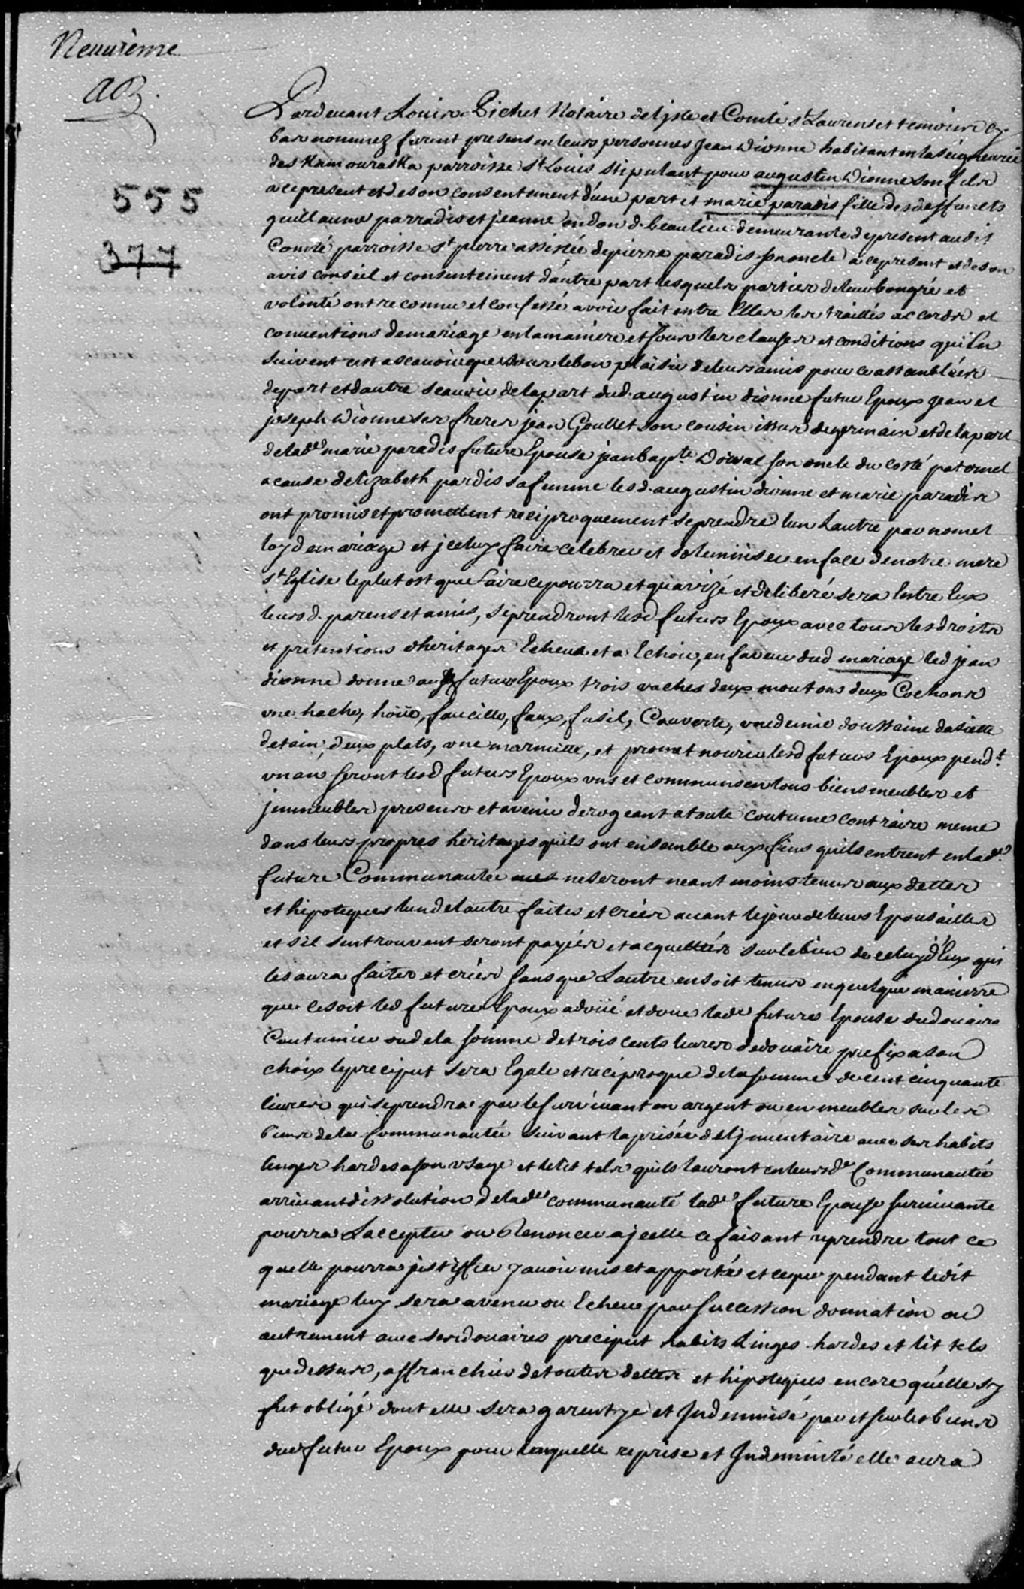 Neuvième
AB.
555
377
Pardevant Louis Pichet Notaire de lisle et Comté st Laurens et temoins cy
bas nommez furent presens en leurs personnes jean Dionne habitant en la seigneurie
des Kamouraska parroisse st Louis stipulant pour augustin Dionne son fils
a ce present et de son consentement d'une part et marie paradis fille des deffuncts
guillaume parradis et jeanne de beaulieu demeurante de present au dit
Comté parroisse st pierre assistée de pierre paradis son oncle a ce present et de son
avis conseil et consentement d'autre part lesquels parties de leur bongré et
volonté ont reconnu et confessé avoir fait entre Elles les traittés accords et
conventions de mariage en la maniere et sous les clauses et conditions qui En
suivent cest ascavoir que sous le bon plaisir de leurs amis pour ce assemblées
de part et dautre scavoir de la part dud. augustin dionne futur Epoux jean et
joseph Dionne ses freres jean Goullet son cousin issus de germain et de la part
de lade marie paradis future Epouse jean bapte Dorval son oncle du costé paternel
a cause delizabeth pardis sa femme lesd. augustin dionne et marie paradis
ont promis et promettent reciproquement se prendre lun Lautre par nom et
loy de mariage et jceluy faire celebrer et solemniser en face de notre mere
st Eglise le plutost que faire ce pourra et quavizé et deliberé sera Entre Eux
leurs d. parens et amis, se prendront lesd futurs Epoux avec tous les droits
et pretentions d'heritages Echeus et a Echoir, en faveur dud mariage led jean
dionne donne aud futur Epoux trois vaches deux moutons deux Cochons
une hache, hoüe, faucille, faux, fusil, Couverte, une demie doussaine dasiette
detain, deux plats, une marmitte, et promet nourir lesd futurs Epoux pendt
un an seront lesd futurs Epoux uns et communs en tous biens meubles et
jmmeubles presens et avenir derogeant a toute coutume contraire meme
dans leurs propres heritages quils ont ensemble aux fins quils entrent en lade
future Communautée ne seront neantmoins tenus aux dettes
et hipoteques lun de lautre faites et créés avant le jour de leurs Epousailles
et sil sen trouvent seront payées et acquittées sur le bien de celuy d'Eux qui
les aura faites et créés sans que Lautre en soit tenus en quelque manierre
que ce soit led futur Epoux a doüé et doue lade future Epouse du douaire
Coutumier ou de la somme de trois cents livres de douaire prefix a son
choix le preciput sera Egale et reciproque de la somme de cent cinquante
livres qui se prendra par le survivant en argent ou en meubles sur les
biens de la Communautée suivant la prisée de l'jnventaire avec ses habits
linges hardes a son usage et le lit tels quils lauront en leursde Communautée
arrivant dissolution de lade communauté lade future Epouse survivante
pourra Laccepter ou Renoncer a jcelle ce faisant reprendre tout ce
quelle pourra justiffier y avoir mis et apporté et ce que pendant ledit
mariage luy sera avenu ou Echeu par succession donnation ou
autrement avec ses douaires preciput habits Linges hardes et lit tels
que dessus, affranchis de toutes dettes et hipoteques encore quélle sy
fut obligé dont elle sera garentye et Indemnisé par et sur les biens
dud futur Epoux pour laquelle reprise et Indemnité elle aura